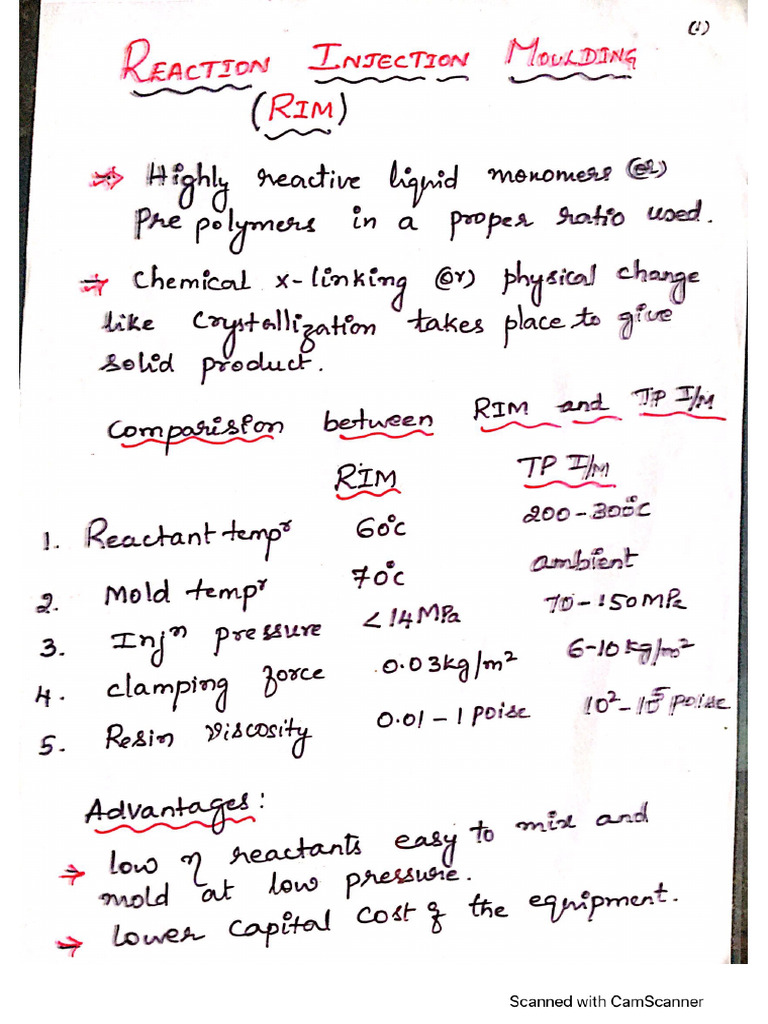 (1)
REACTION INJECTION MOULDING
(RIM)
⇒ Highly reactive liquid monomers (or)
Pre polymers in a proper ratio used.
⇒ Chemical x-linking (or) physical change
like Crystallization takes place to give
solid product.
Comparision between RIM and TP I/M
RIM TP I/M
1. Reactant tempʳ 60°c 200-300°c
2. Mold tempʳ 70°c ambient
3. Injⁿ pressure <14MPa 70-150MPa
4. clamping force 0.03kg/m² 6-10kg/m²
5. Resin viscosity 0.01-1 poise 10²-10⁵ poise
Advantages:
⇒ low η reactants easy to mix and
mold at low pressure.
⇒ lower capital cost of the equipment.
Scanned with CamScanner